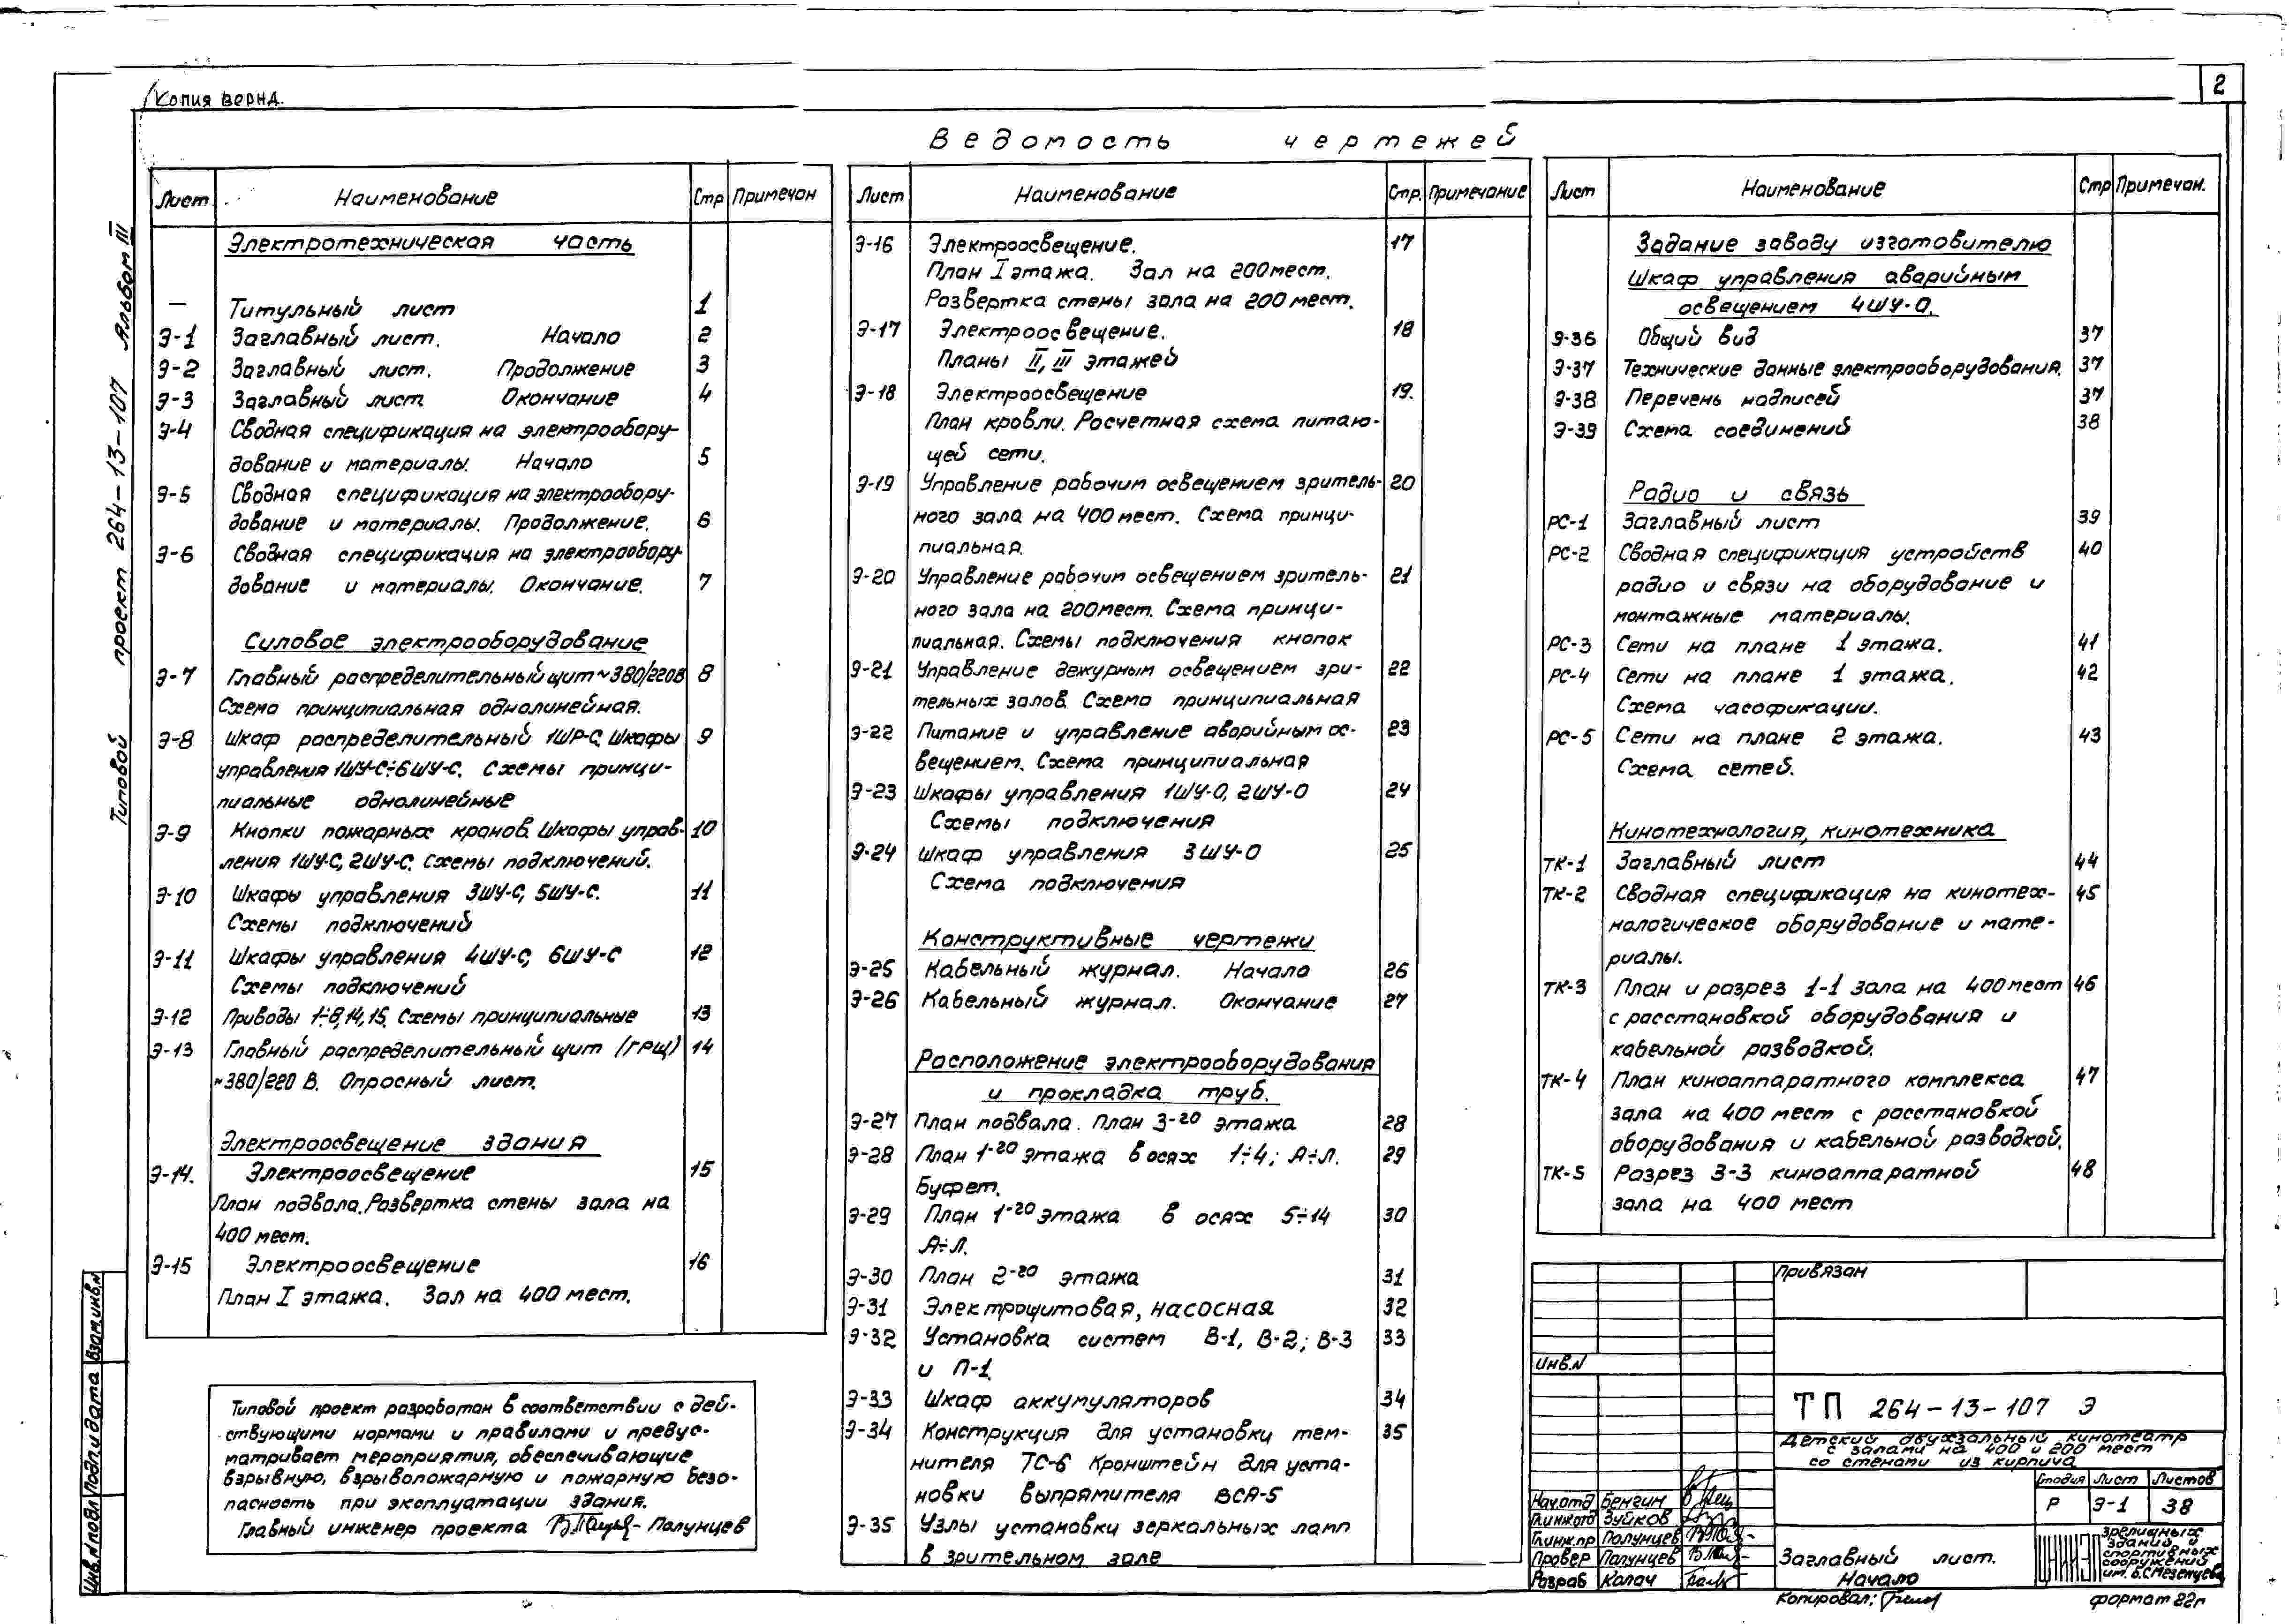 Копия верна.
2
Ведомость чертежей
Типовой проект 264-13-107 Альбом III
Лист Наименование Стр Примечан
Электротехническая часть
— Титульный лист 1
Э-1 Заглавный лист. Начало 2
Э-2 Заглавный лист. Продолжение 3
Э-3 Заглавный лист Окончание 4
Э-4 Сводная спецификация на электрообору-
дование и материалы. Начало 5
Э-5 Сводная спецификация на электрообору-
дование и материалы. Продолжение. 6
Э-6 Сводная спецификация на электрообору-
дование и материалы. Окончание. 7
Силовое электрооборудование
Э-7 Главный распределительный щит ~380/220В 8
Схема принципиальная однолинейная.
Э-8 Шкаф распределительный 1ШР-С, Шкафы 9
управления 1ШУ-С÷6ШУ-С. Схемы принци-
пиальные однолинейные
Э-9 Кнопки пожарных кранов. Шкафы управ- 10
ления 1ШУ-С, 2ШУ-С. Схемы подключений.
Э-10 Шкафы управления 3ШУ-С, 5ШУ-С. 11
Схемы подключений
Э-11 Шкафы управления 4ШУ-С, 6ШУ-С 12
Схемы подключений
Э-12 Приводы 1÷8,14,15. Схемы принципиальные 13
Э-13 Главный распределительный щит (ГРЩ) 14
~380/220 В. Опросный лист.
Электроосвещение здания
Э-14. Электроосвещение 15
План подвала. Развертка стены зала на
400 мест.
Э-15 Электроосвещение 16
План I этажа. Зал на 400 мест.
Типовой проект разработан в соответствии с дей-
ствующими нормами и правилами и предус-
матривает мероприятия, обеспечивающие
взрывную, взрывопожарную и пожарную безо-
пасность при эксплуатации здания.
Главный инженер проекта Полунцев
Лист Наименование Стр. Примечание
Э-16 Электроосвещение. 17
План I этажа. Зал на 200 мест.
Развертка стены зала на 200 мест.
Э-17 Электроосвещение. 18
Планы II, III этажей
Э-18 Электроосвещение 19.
План кровли. Расчетная схема питаю-
щей сети.
Э-19 Управление рабочим освещением зритель- 20
ного зала на 400 мест. Схема принци-
пиальная.
Э-20 Управление рабочим освещением зритель- 21
ного зала на 200 мест. Схема принци-
пиальная. Схемы подключения кнопок
Э-21 Управление дежурным освещением зри- 22
тельных залов. Схема принципиальная
Э-22 Питание и управление аварийным ос- 23
вещением. Схема принципиальная
Э-23 Шкафы управления 1ШУ-О, 2ШУ-О 24
Схемы подключения
Э-24 Шкаф управления 3ШУ-О 25
Схема подключения
Конструктивные чертежи
Э-25 Кабельный журнал. Начало 26
Э-26 Кабельный журнал. Окончание 27
Расположение электрооборудования
и прокладка труб.
Э-27 План подвала. План 3-го этажа 28
Э-28 План 1-го этажа в осях 1÷4; А÷Л. 29
Буфет.
Э-29 План 1-го этажа в осях 5÷14 30
А÷Л.
Э-30 План 2-го этажа 31
Э-31 Электрощитовая, насосная 32
Э-32 Установка систем В-1, В-2; В-3 33
и П-1.
Э-33 Шкаф аккумуляторов 34
Э-34 Конструкция для установки тем- 35
нителя ТС-6 Кронштейн для уста-
новки выпрямителя ВСА-5
Э-35 Узлы установки зеркальных ламп
в зрительном зале
Лист Наименование Стр Примечан.
Задание заводу изготовителю
Шкаф управления аварийным
освещением 4ШУ-О.
Э-36 Общий вид 37
Э-37 Технические данные электрооборудования. 37
Э-38 Перечень надписей 37
Э-39 Схема соединений 38
Радио и связь
РС-1 Заглавный лист 39
РС-2 Сводная спецификация устройств 40
радио и связи на оборудование и
монтажные материалы.
РС-3 Сети на плане 1 этажа. 41
РС-4 Сети на плане 1 этажа. 42
Схема часофикации.
РС-5 Сети на плане 2 этажа. 43
Схема сетей.
Кинотехнология, кинотехника
ТК-1 Заглавный лист 44
ТК-2 Сводная спецификация на кинотех- 45
нологическое оборудование и мате-
риалы.
ТК-3 План и разрез 1-1 зала на 400 мест 46
с расстановкой оборудования и
кабельной разводкой.
ТК-4 План киноаппаратного комплекса 47
зала на 400 мест с расстановкой
оборудования и кабельной разводкой.
ТК-5 Разрез 3-3 киноаппаратной 48
зала на 400 мест
Привязан
Инв.N
ТП 264-13-107 Э
Детский двухзальный кинотеатр
с залами на 400 и 200 мест
со стенами из кирпича
Стадия Лист Листов
Р Э-1 38
Нач.отд Бенгин
Гл.инж.отд Зубков
Гл.инж.пр Полунцев
Провер Полунцев
Разраб Колач
Заглавный лист.
Начало
зрелищных
зданий и
спортивных
сооружений
им. Б.С. Мезенцева
Копировал:
формат 22г
Инв.N подл Подп. и дата Взам.инв.N